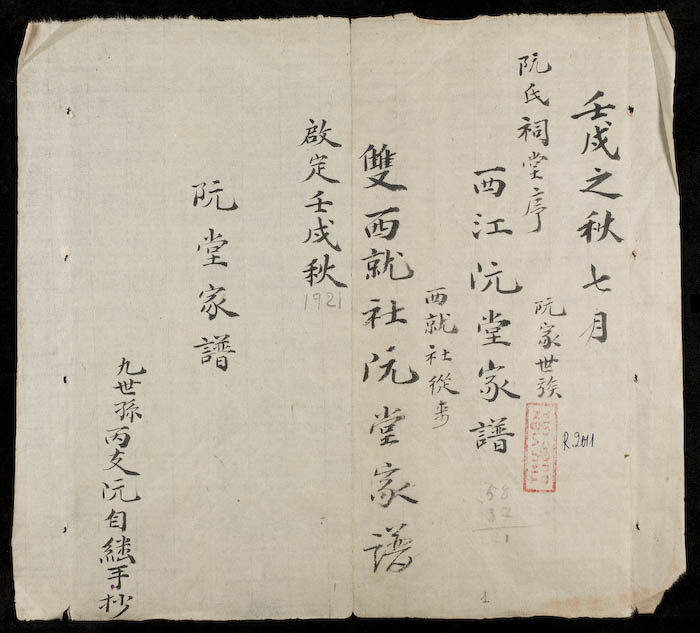 壬戌之秋七月
阮氏祠堂序
阮家世族
R.2011
西江阮堂家譜
58
37
1
西就社從来
雙西就社阮堂家譜
啟定壬戌秋
1921
阮堂家譜
九世孫丙支阮自繼手抄
1